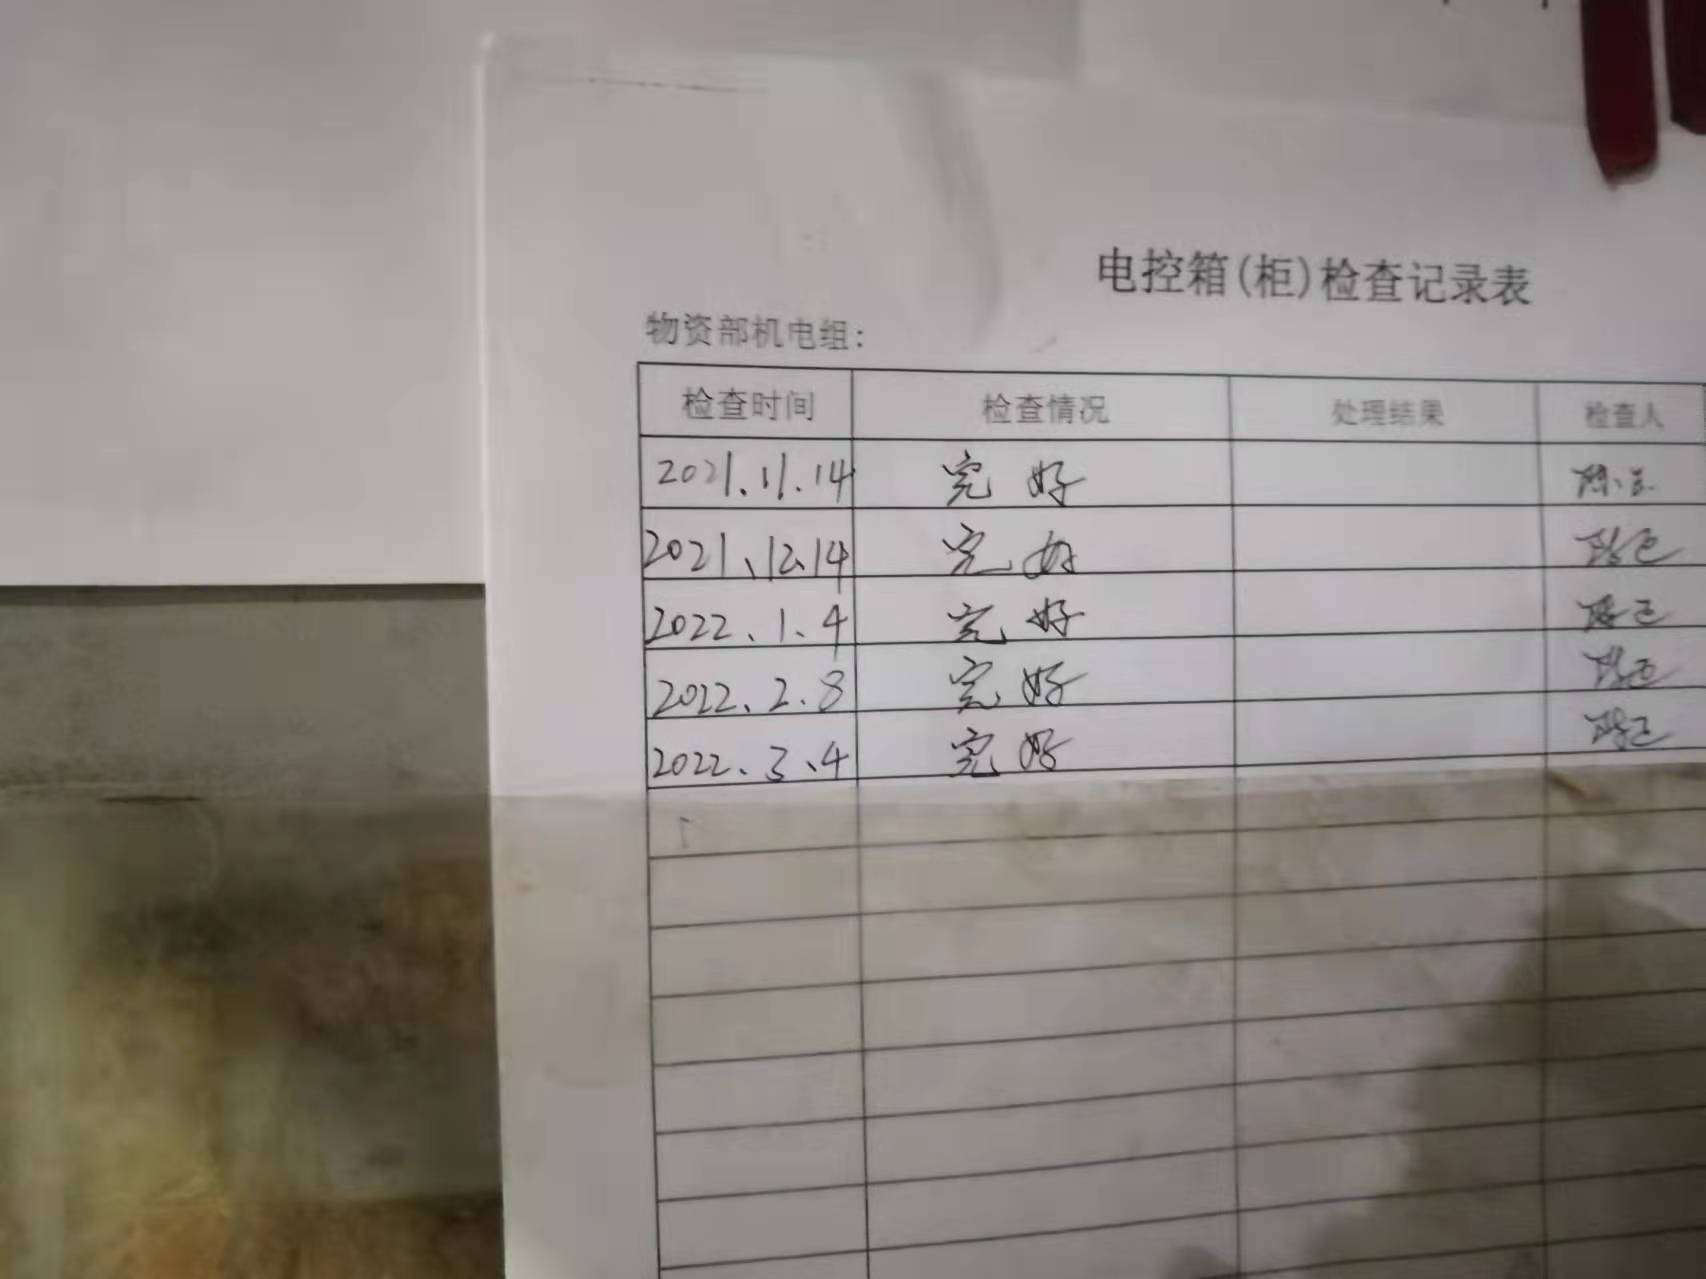 电控箱(柜)检查记录表
物资部机电组:
检查时间 检查情况 处理结果 检查人
2021.11.14 完好
2021、12、14 完好
2022、1、4 完好
2022、2、8 完好
2022、3、4 完好